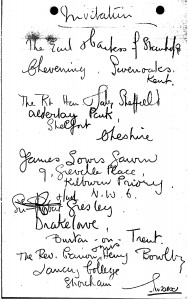 Invitation
The Earl & Countess of Stanhope
Chevening, Sevenoaks.
Kent.
The Rt. Hon Lady Sheffield
Alderley Park,
Cheshire
James Lewis
9, Greville Place,
Kilburn Priory
N.W. 6.
Sir Robert & Lady Gresley
Drakelowe,
Burton-on-Trent.
The Rev. Canon Henry Bowlby
Lancing College
Shoreham
Sussex